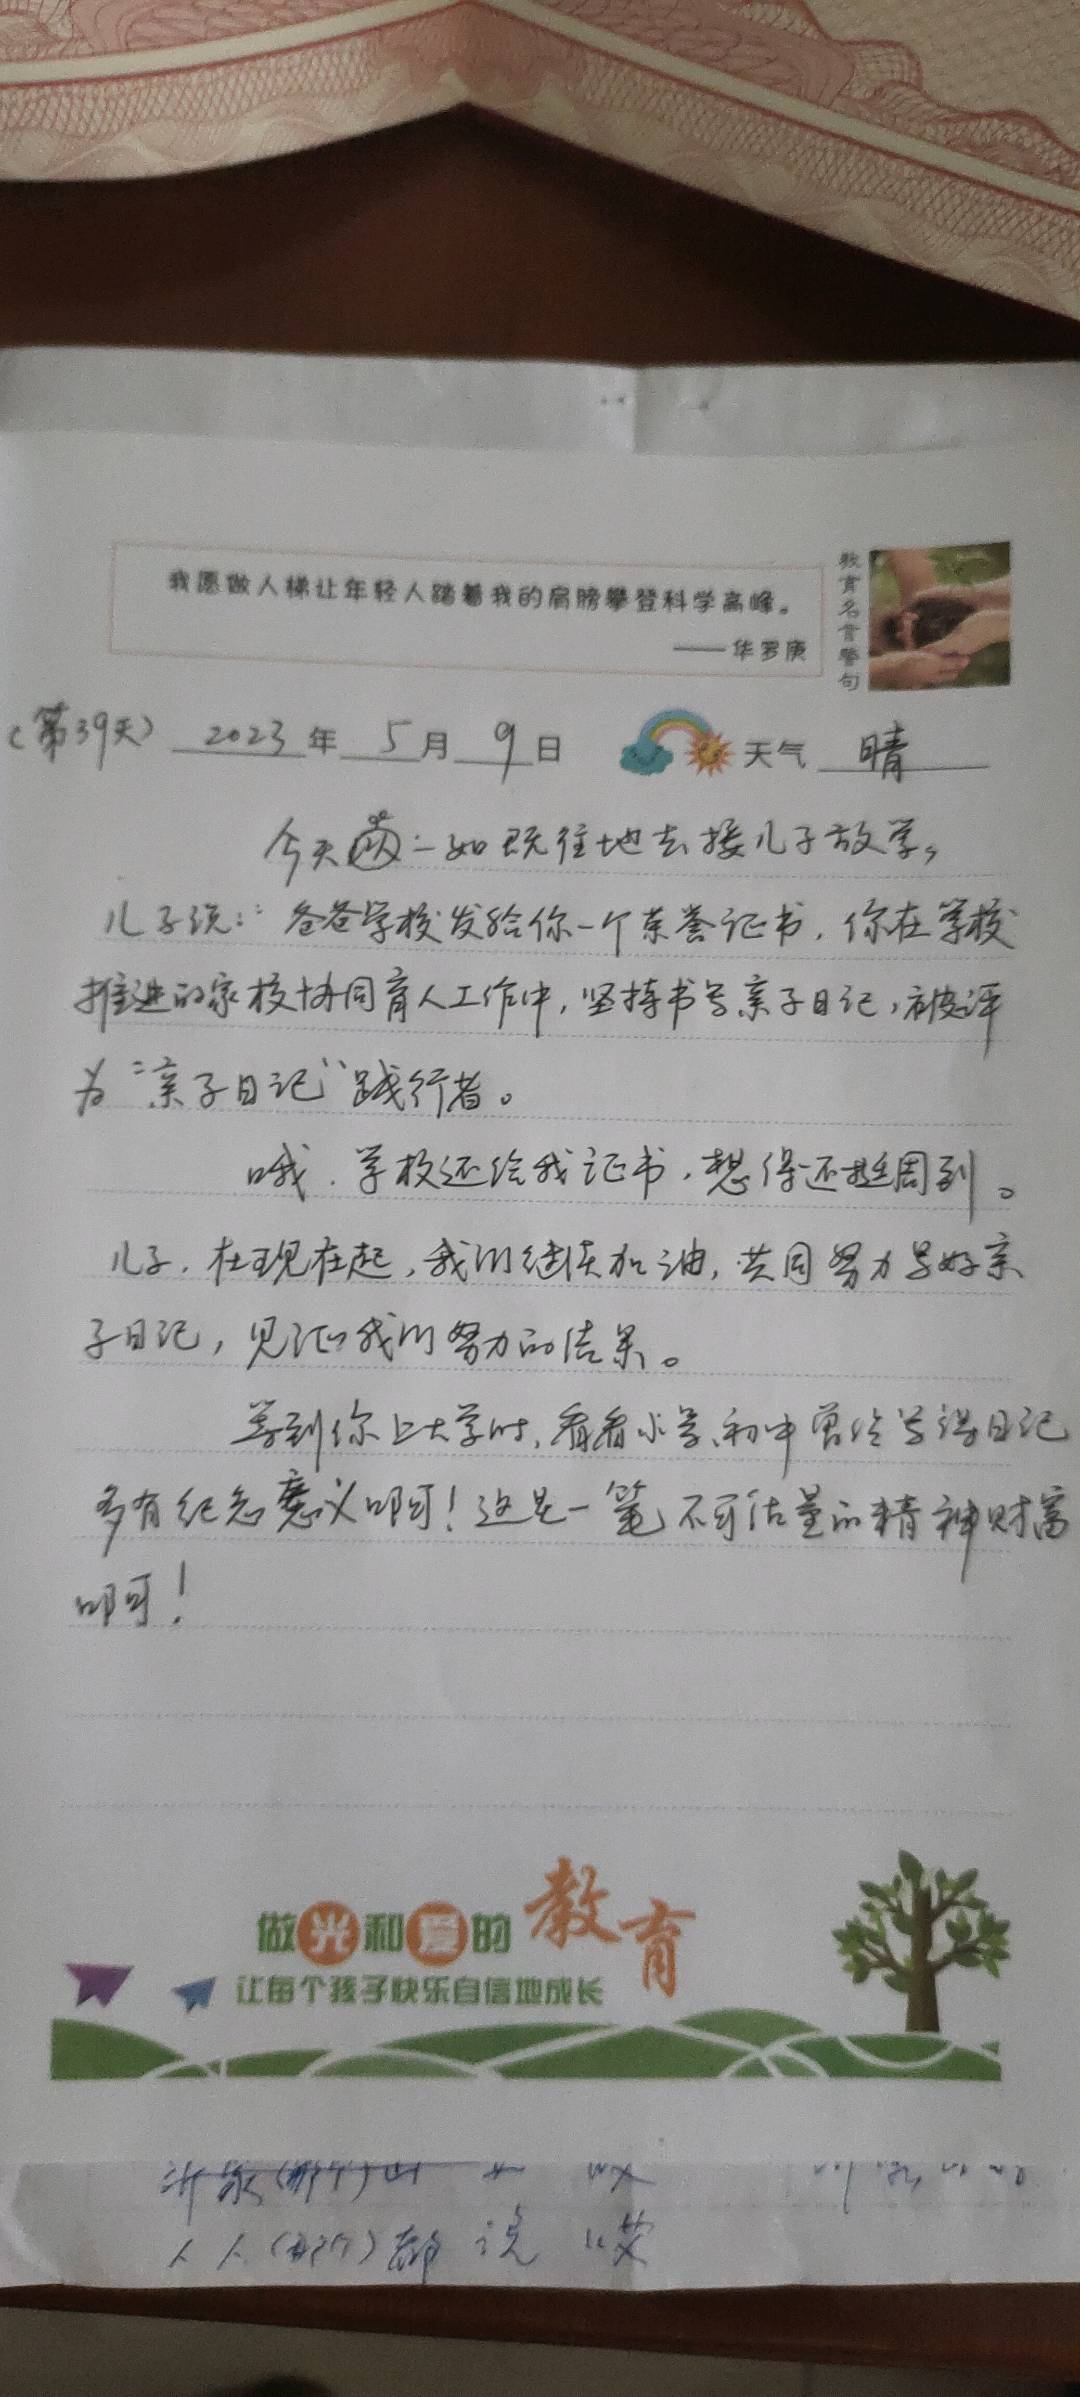 我愿做人梯让年轻人踏着我的肩膀攀登科学高峰。
——华罗庚
教育名言警句
(第39天) 2023年5月9日 天气 晴
今天一如既往地去接儿子放学,
儿子说:“爸爸学校发给你一个荣誉证书,你在学校
推进的家校协同育人工作中,坚持书写亲子日记,被评
为“亲子日记”践行者。
哦.学校还给我证书,想得还挺周到。
儿子.在现在起,我们继续加油,共同努力写好亲
子日记,见证我们努力的结果。
等到你上大学时,看看小学、初中曾经写得日记
多有纪念意义啊!这是一笔不可估量的精神财富
啊!
做光和爱的教育
让每个孩子快乐自信地成长
人人 都说